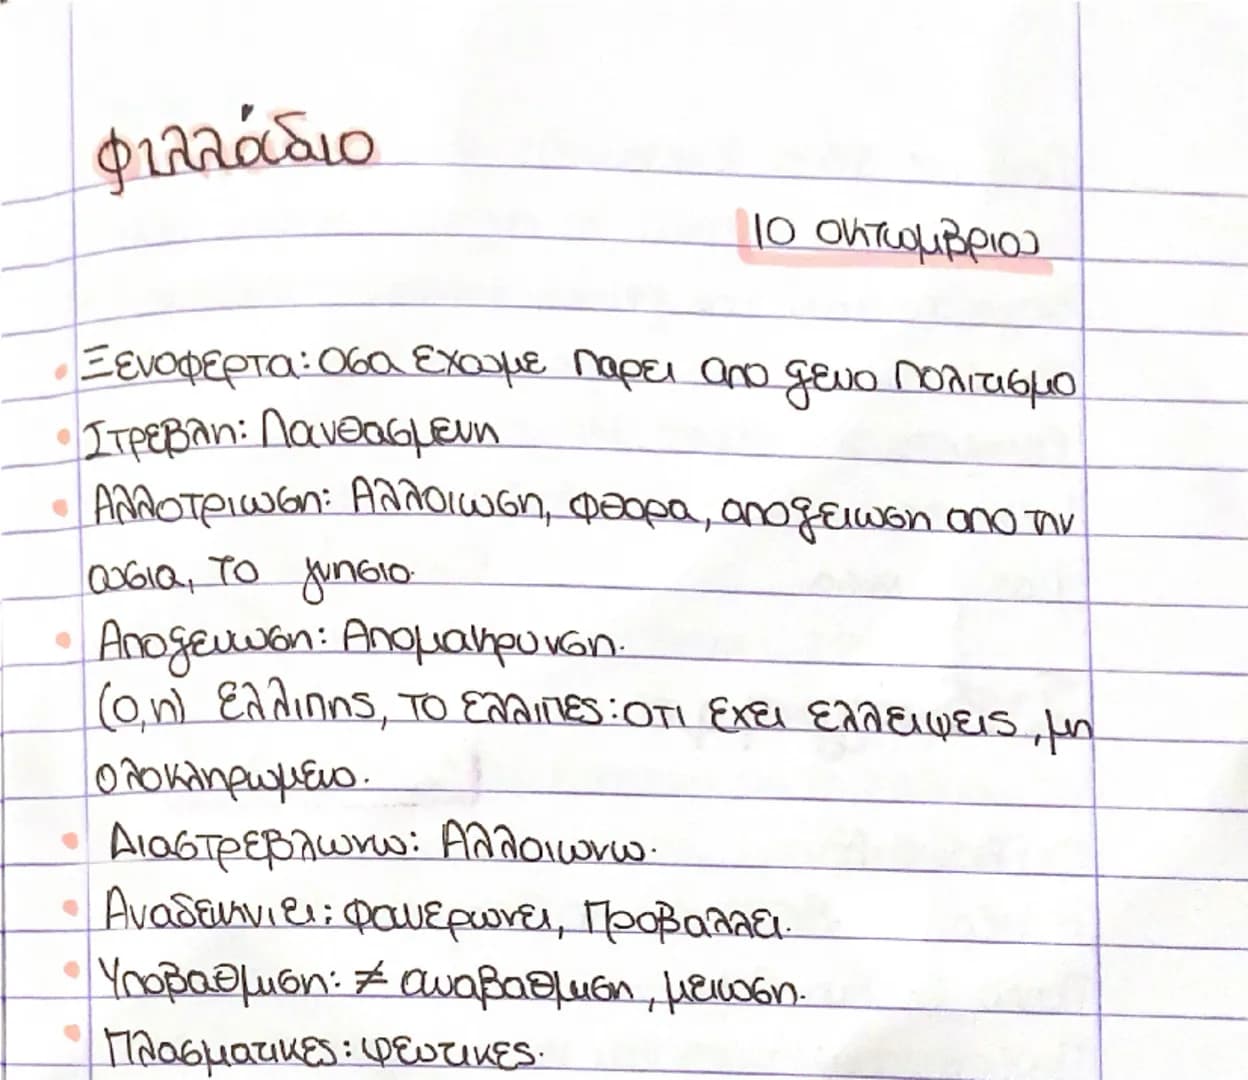 Φιλλάδιο
10 Οκτωμβριου
Ξενοφερτα: Οσα εχουμε παρει απο ξενο πολιτισμο
Στρεβλη: Λανθασμενη
Αλλοτριωση: Αλλοιωση, φθορα, αποξειωση απο την
ουσια, το γνησιο.
Αποξενωση: Απομακρυνση.
(ο,η) ελλιπης, το ελλιπες: οτι εχει ελλειψεις, μη
ολοκληρωμενο.
Διαστρεβλωνω: Αλλοιωνω.
Αναδεικνιει: φανερωνει, Προβαλλει.
Υποβαθμιση: ≠ αναβαθμιση, μειωση.
Πλασματικες: ψευτικες.